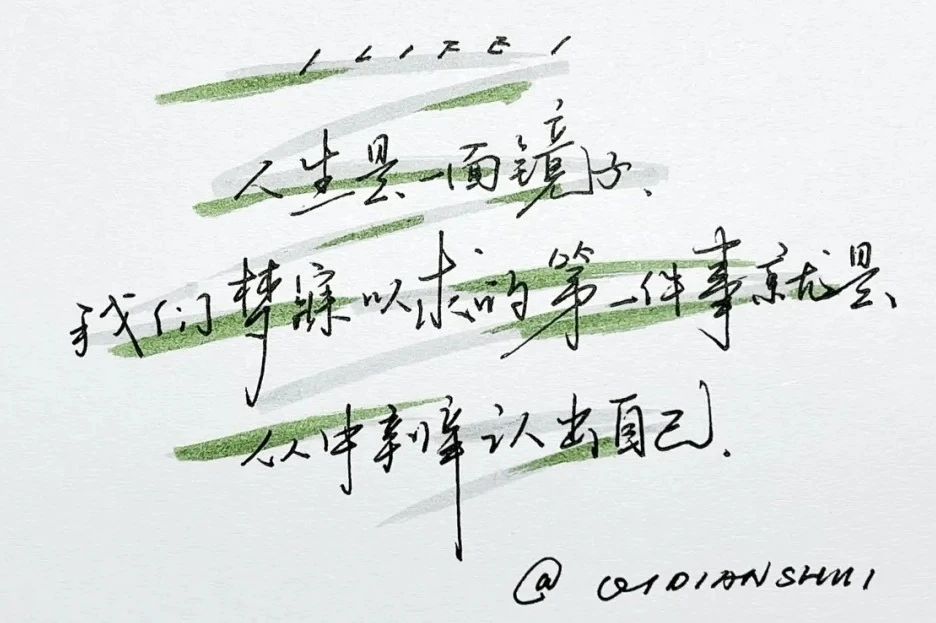 I LIFE I
人生是一面镜子、
我们梦寐以求的第一件事就是、
从中辨认出自己.
@QIDIANSHUI